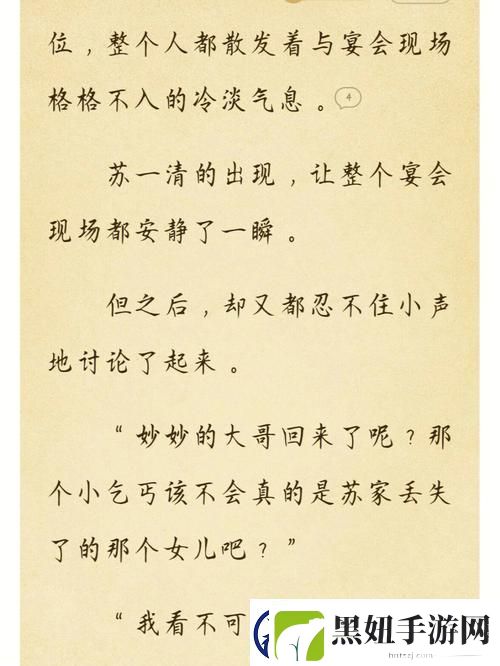 位，整个人都散发着与宴会现场
格格不入的冷淡气息。 4
苏一清的出现，让整个宴会
现场都安静了一瞬。
但之后，却又都忍不住小声
地讨论了起来。
“妙妙的大哥回来了呢？那
个小乞丐该不会真的是苏家丢失
了的那个女儿吧？”
“我看不可
黑妞手游网
hntzsj.com